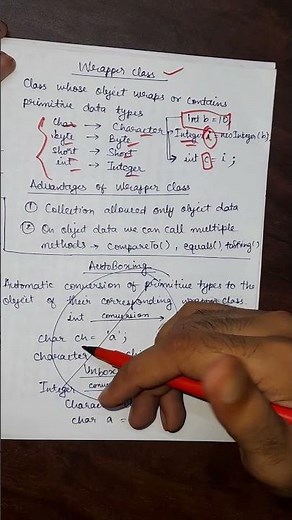 Wrapper class
Class whose object wraps or contains
primitive data types
int b = 10;
char → Character
Integer i = new Integer(b);
byte → Byte
short → Short
int c = i ;
int → Integer
Advantages of Wrapper class
① Collection allowed only object data
② On object data we can call multiple
methods → compareTo(), equals(), toString()
AutoBoxing
Automatic conversion of primitive types to the
object of their corresponding wrapper class.
int conversion
char ch = 'a';
Character ch
Unbox
Integer
char a =